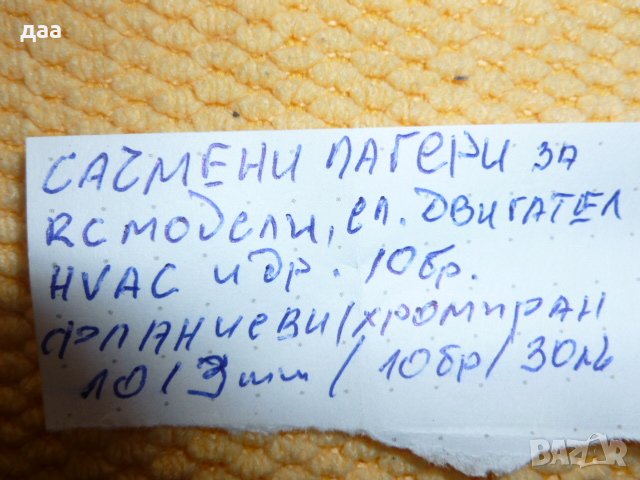 даа
САЧМЕНИ ЛАГЕРИ ЗА
RC модели, ел. ДВИГАТЕЛ
HVAC и др. 10бр.
ФЛАНЦЕВИ/ХРОМИРАН
10/3mm/10бр/30лв
BAZAR